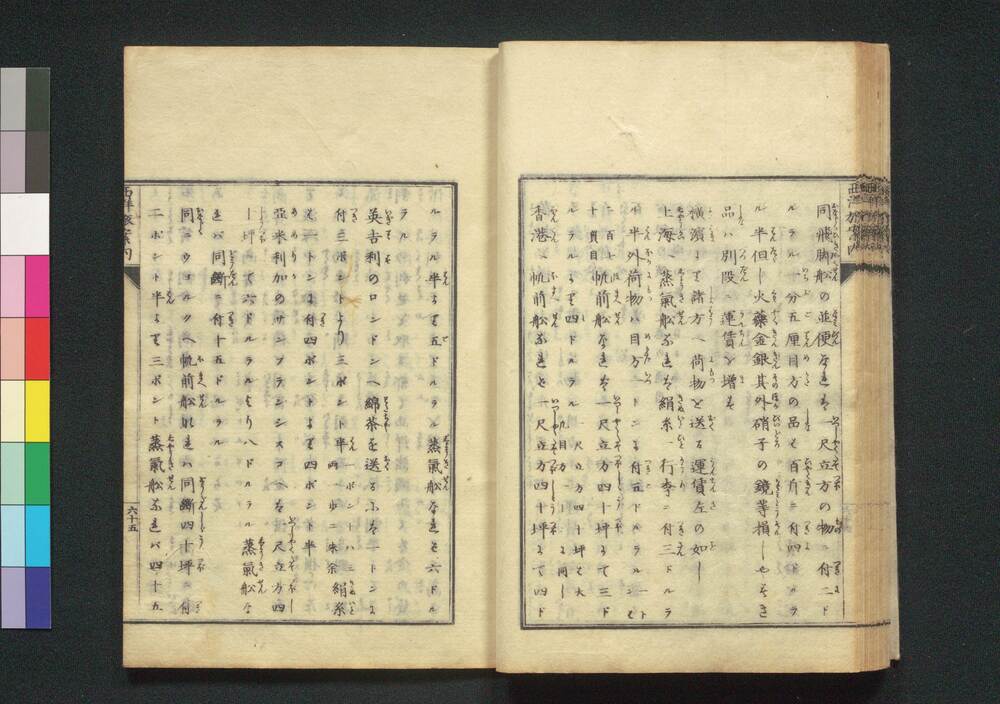 西洋旅案内
同飛脚舩の並便なれば一尺立方の物ニ付二ド
ルラル一分五厘目方の品は百斤ニ付四ドルラ
ル半但し火藥金銀其外硝子の鏡等損しやすき
品ハ別段ニ運賃を増す
横濱より諸方へ荷物を送る運賃左の如し
上海へ蒸氣舩なれば絹糸一行李ニ付三ドルラ
ル半外荷物ハ目方一トンニ付五ドルラル
十貫目帆前舩なれば一尺立方四十坪にて三ド
ルラルより四ドルラル
香港へ帆前舩なれば一尺立方四十坪にて四ド
ルラル半より五ドルラル蒸氣舩なれば六ドル
ラル
英吉利のロンドンへ綿茶を送るには一トンに
付三ポントより三ポント半絹糸
は一トンに付四ポントより四ポント半
亞米利加のサンフランシスコへは一尺立方四
十坪にて六ドルラルより八ドルラル蒸氣舩な
れバ同斷ニ付十五ドルラル
同ニウヨルクへ帆前舩なれハ同斷四十坪ニ付
二ポント半より三ポント蒸氣舩なれバ四十五
西洋旅案内
六十五